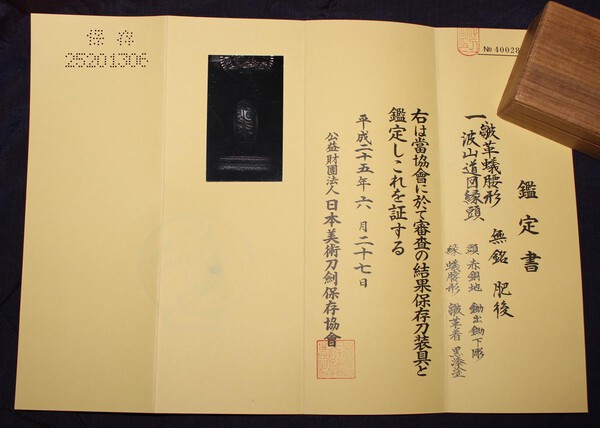 保存
25201306
鑑定書
一 皺革蟻腰形 無銘 肥後
波山道図縁頭
頭 赤銅地 鋤出鋤下彫
縁 蟻腰形 皺革着 黒漆塗
右は當協會に於て審査の結果保存刀装具と
鑑定しこれを証する
平成二十五年六月二十七日
公益財團法人 日本美術刀剣保存協會
№40028